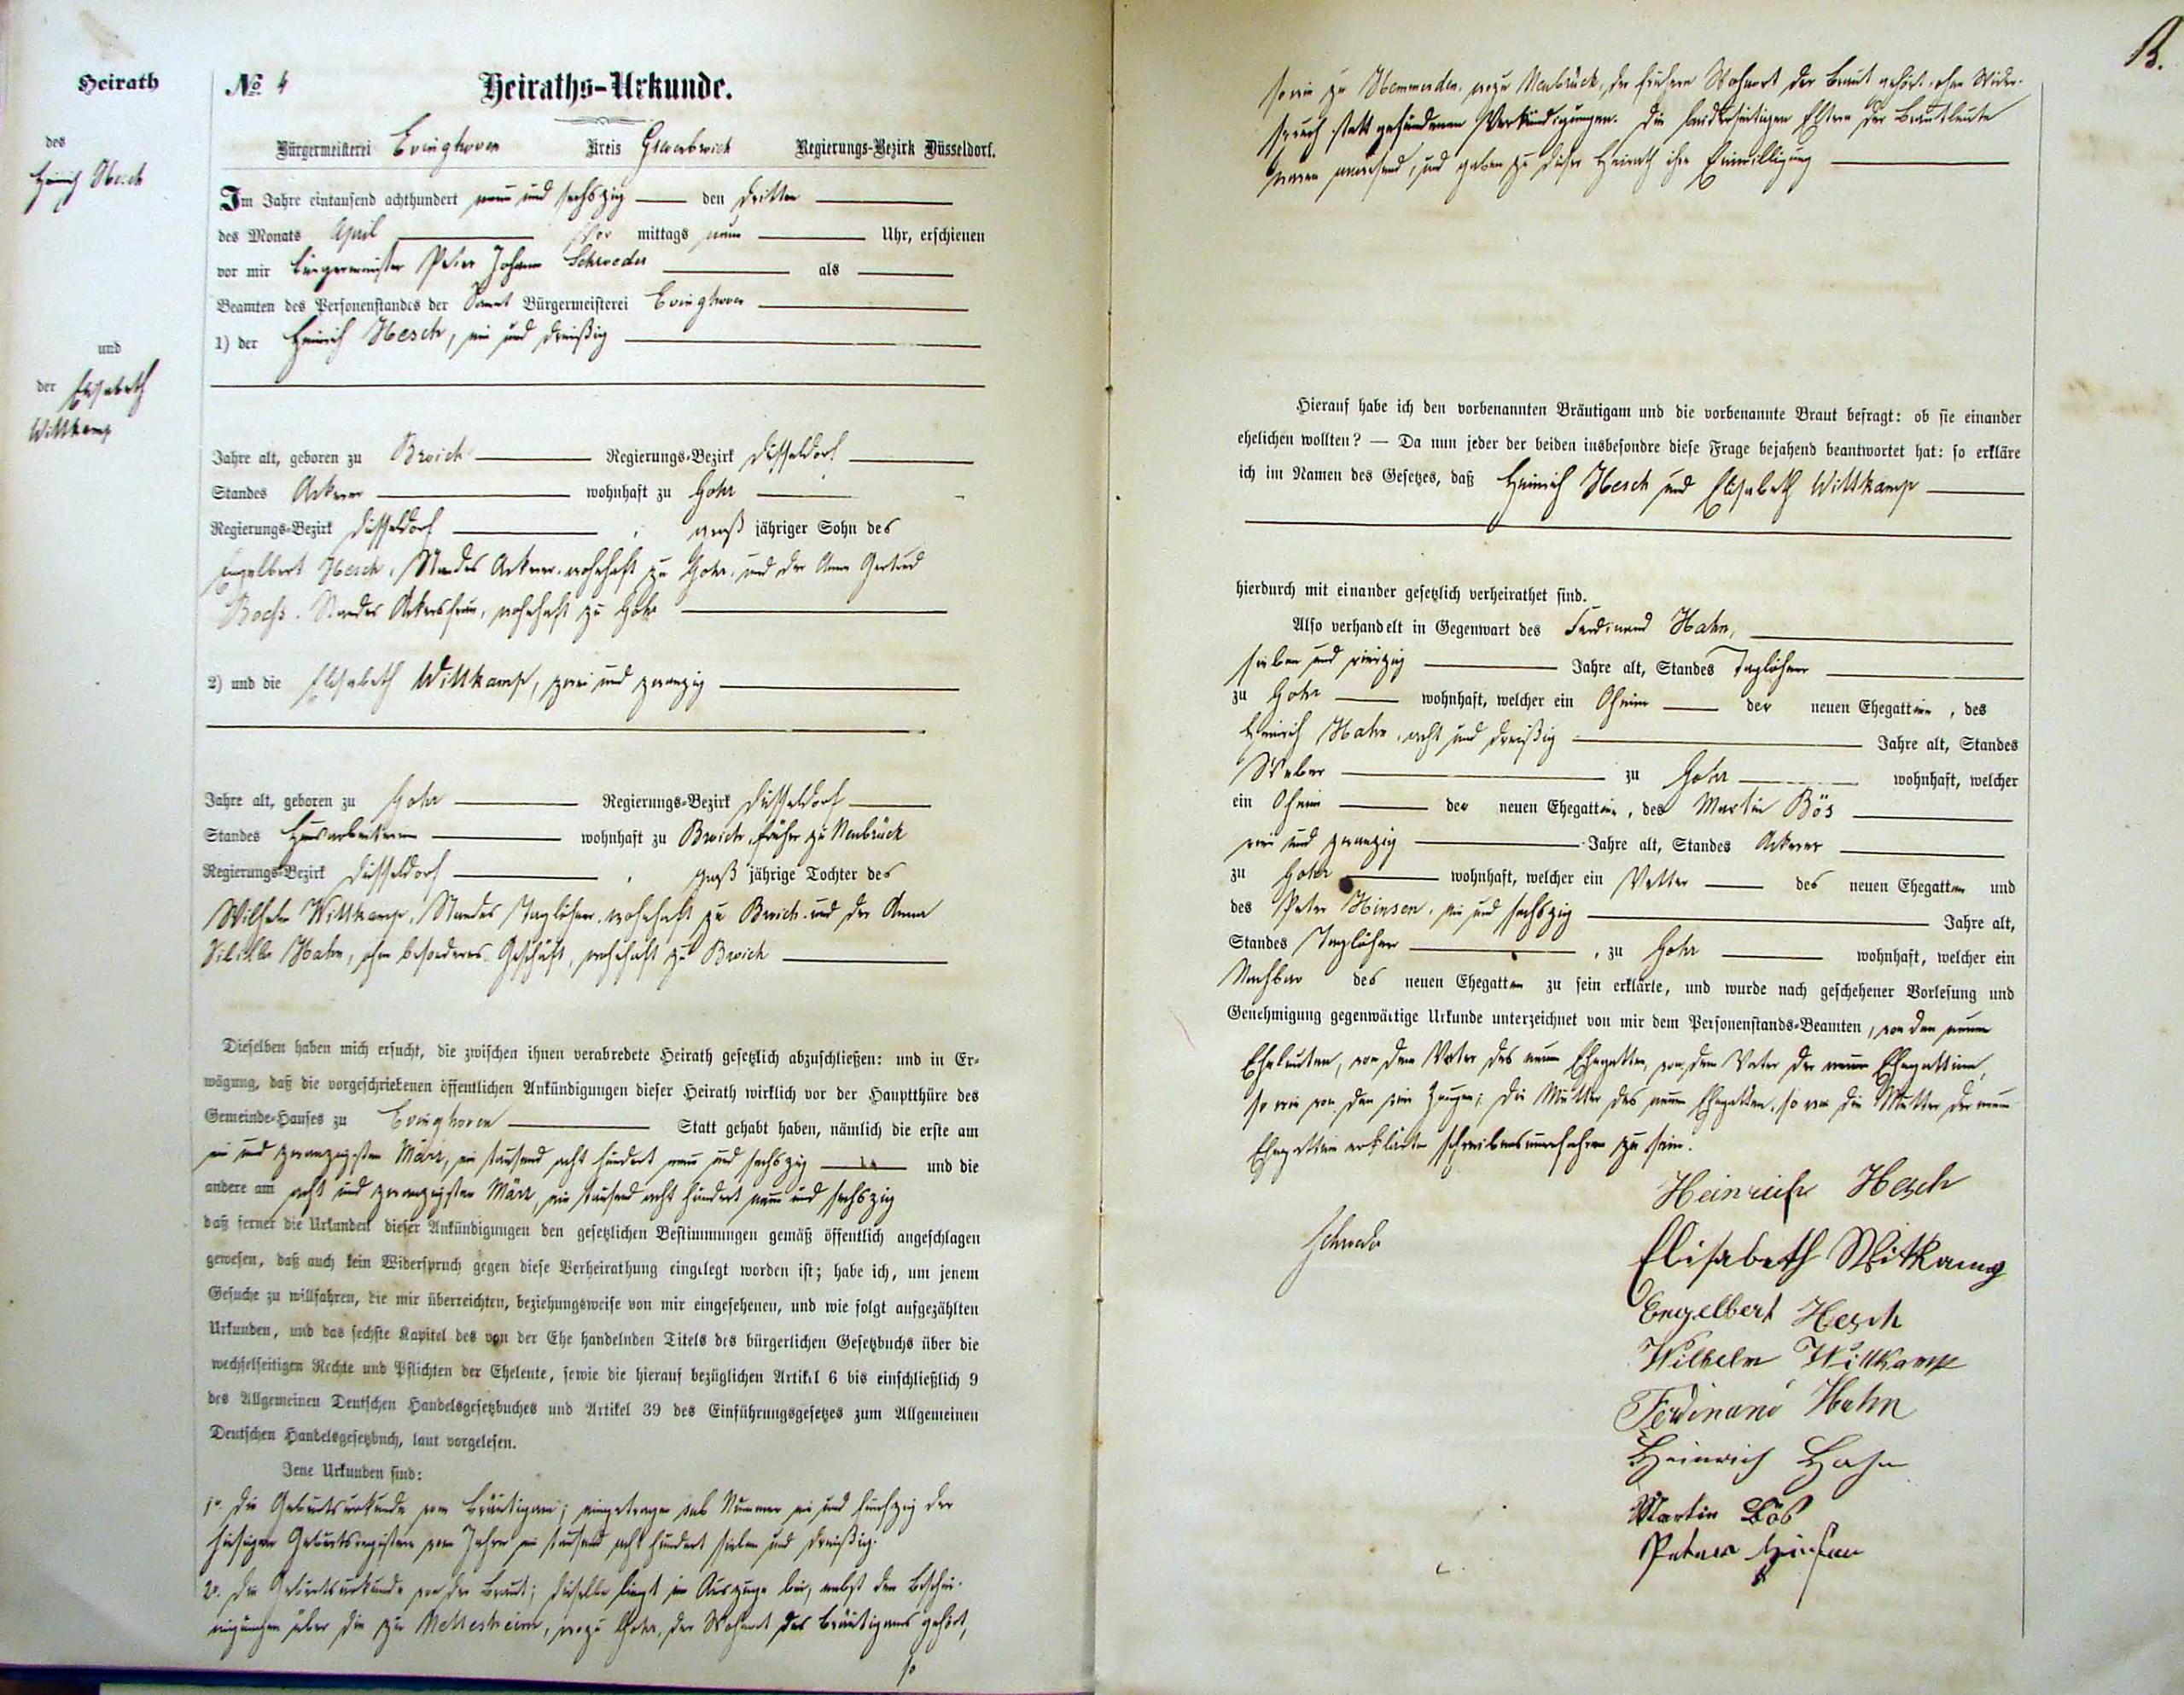 Heirath
des
Heinrich Hesch
und
der Elisabeth
Wittkamp
No. 4 Heiraths-Urkunde.
Bürgermeisterei Evinghoven Kreis Grevenbroich Regierungs-Bezirk Düsseldorf.
Im Jahre eintausend achthundert neun und sechszig den dritten
des Monats April Vor mittags neun Uhr, erschienen
vor mir Bürgermeister Peter Johann Schroeder als
Beamten des Personenstandes der Samt Bürgermeisterei Evinghoven
1) der Heinrich Hesch, ein und dreißig
Jahre alt, geboren zu Broich Regierungs-Bezirk Düsseldorf
Standes Ackerer wohnhaft zu Gohr
Regierungs-Bezirk Düsseldorf, groß jähriger Sohn des
Engelbert Hesch, Standes Ackerer, wohnhaft zu Gohr, und der Anna Gertrud
Standes Ackersfrau, wohnhaft zu Gohr
2) und die Elisabeth Wittkamp, zwei und zwanzig
Jahre alt, geboren zu Gohr Regierungs-Bezirk Düsseldorf
Standes Handarbeiterin wohnhaft zu Broich, früher zu Neubrück
Regierungs-Bezirk Düsseldorf, groß jährige Tochter des
Wilhelm Wittkamp, Standes Taglöhner, wohnhaft zu Broich und der Anna
Sibilla Hahn, ohne besonderes Geschäft, wohnhaft zu Broich
Dieselben haben mich ersucht, die zwischen ihnen verabredete Heirath gesetzlich abzuschließen: und in Er-
wägung, daß die vorgeschriebenen öffentlichen Ankündigungen dieser Heirath wirklich vor der Hauptthüre des
Gemeinde-Hauses zu Evinghoven Statt gehabt haben, nämlich die erste am
ein und zwanzigsten März, ein tausend acht hundert neun und sechszig und die
andere am acht und zwanzigsten März, ein tausend acht hundert neun und sechszig
daß ferner die Urkunden dieser Ankündigungen den gesetzlichen Bestimmungen gemäß öffentlich angeschlagen
gewesen, daß auch kein Widerspruch gegen diese Verheirathung eingelegt worden ist; habe ich, um jenem
Gesuche zu willfahren, die mir überreichten, beziehungsweise von mir eingesehenen, und wie folgt aufgezählten
Urkunden, und das sechste Kapitel des von der Ehe handelnden Titels des bürgerlichen Gesetzbuchs über die
wechselseitigen Rechte und Pflichten der Eheleute, sowie die hierauf bezüglichen Artikel 6 bis einschließlich 9
des Allgemeinen Deutschen Handelsgesetzbuches und Artikel 39 des Einführungsgesetzes zum Allgemeinen
Deutschen Handelsgesetzbuch, laut vorgelesen.
Jene Urkunden sind:
1o. die Geburtsurkunde vom Bräutigam; eingetragen sub Nummer ein und fünfzig der
hiesigen Geburtsregister vom Jahre ein tausend acht hundert sieben und dreißig.
2o. die Geburtsurkunde von der Braut; dieselbe liegt im Auszuge bei, nebst den Beschei-
nigungen über die zu Nettesheim, wozu Gohr, der Wohnort des Bräutigams gehört,
so
so wie zu Hemmerden, wozu Neubrück, der frühere Wohnort der Braut gehört, ohne Wider-
spruch statt gefundenen Verkündigungen. Die beiderseitigen Eltern der Brautleute
waren anwesend, und gaben zu dieser Heirath ihre Einwilligung
Hierauf habe ich den vorbenannten Bräutigam und die vorbenannte Braut befragt: ob sie einander
ehelichen wollten? — Da nun jeder der beiden insbesondre diese Frage bejahend beantwortet hat: so erkläre
ich im Namen des Gesetzes, daß Heinrich Hesch und Elisabeth Wittkamp
hierdurch mit einander gesetzlich verheirathet sind.
Also verhandelt in Gegenwart des Ferdinand Hahn,
sieben und vierzig Jahre alt, Standes Taglöhner
zu Gohr wohnhaft, welcher ein Oheim der neuen Ehegattin, des
Heinrich Hahn, acht und dreißig Jahre alt, Standes
Weber zu Gohr wohnhaft, welcher
ein Oheim der neuen Ehegattin, des Martin Bös
und zwanzig Jahre alt, Standes Ackerer
zu Gohr wohnhaft, welcher ein Vetter des neuen Ehegatten und
des Peter Hinsen, ein und sechszig Jahre alt,
Standes Taglöhner, zu Gohr wohnhaft, welcher ein
Nachbar des neuen Ehegatten zu sein erklärte, und wurde nach geschehener Vorlesung und
Genehmigung gegenwärtige Urkunde unterzeichnet von mir dem Personenstands-Beamten, von den neuen
Eheleuten, von dem Vater des neuen Ehegatten, von dem Vater der neuen Ehegattin,
so wie von den vier Zeugen; die Mutter des neuen Ehegatten, so wie die Mutter der neuen
Ehegattin erklärten schreibensunerfahren zu sein.
Heinrich Hesch
Schroeder
Elisabeth Witkamp
Engelbert Hesch
Wilhelm Wittkamp
Ferdinand Hahn
Heinrich Hahn
Martin Bös
Peter Hinsen